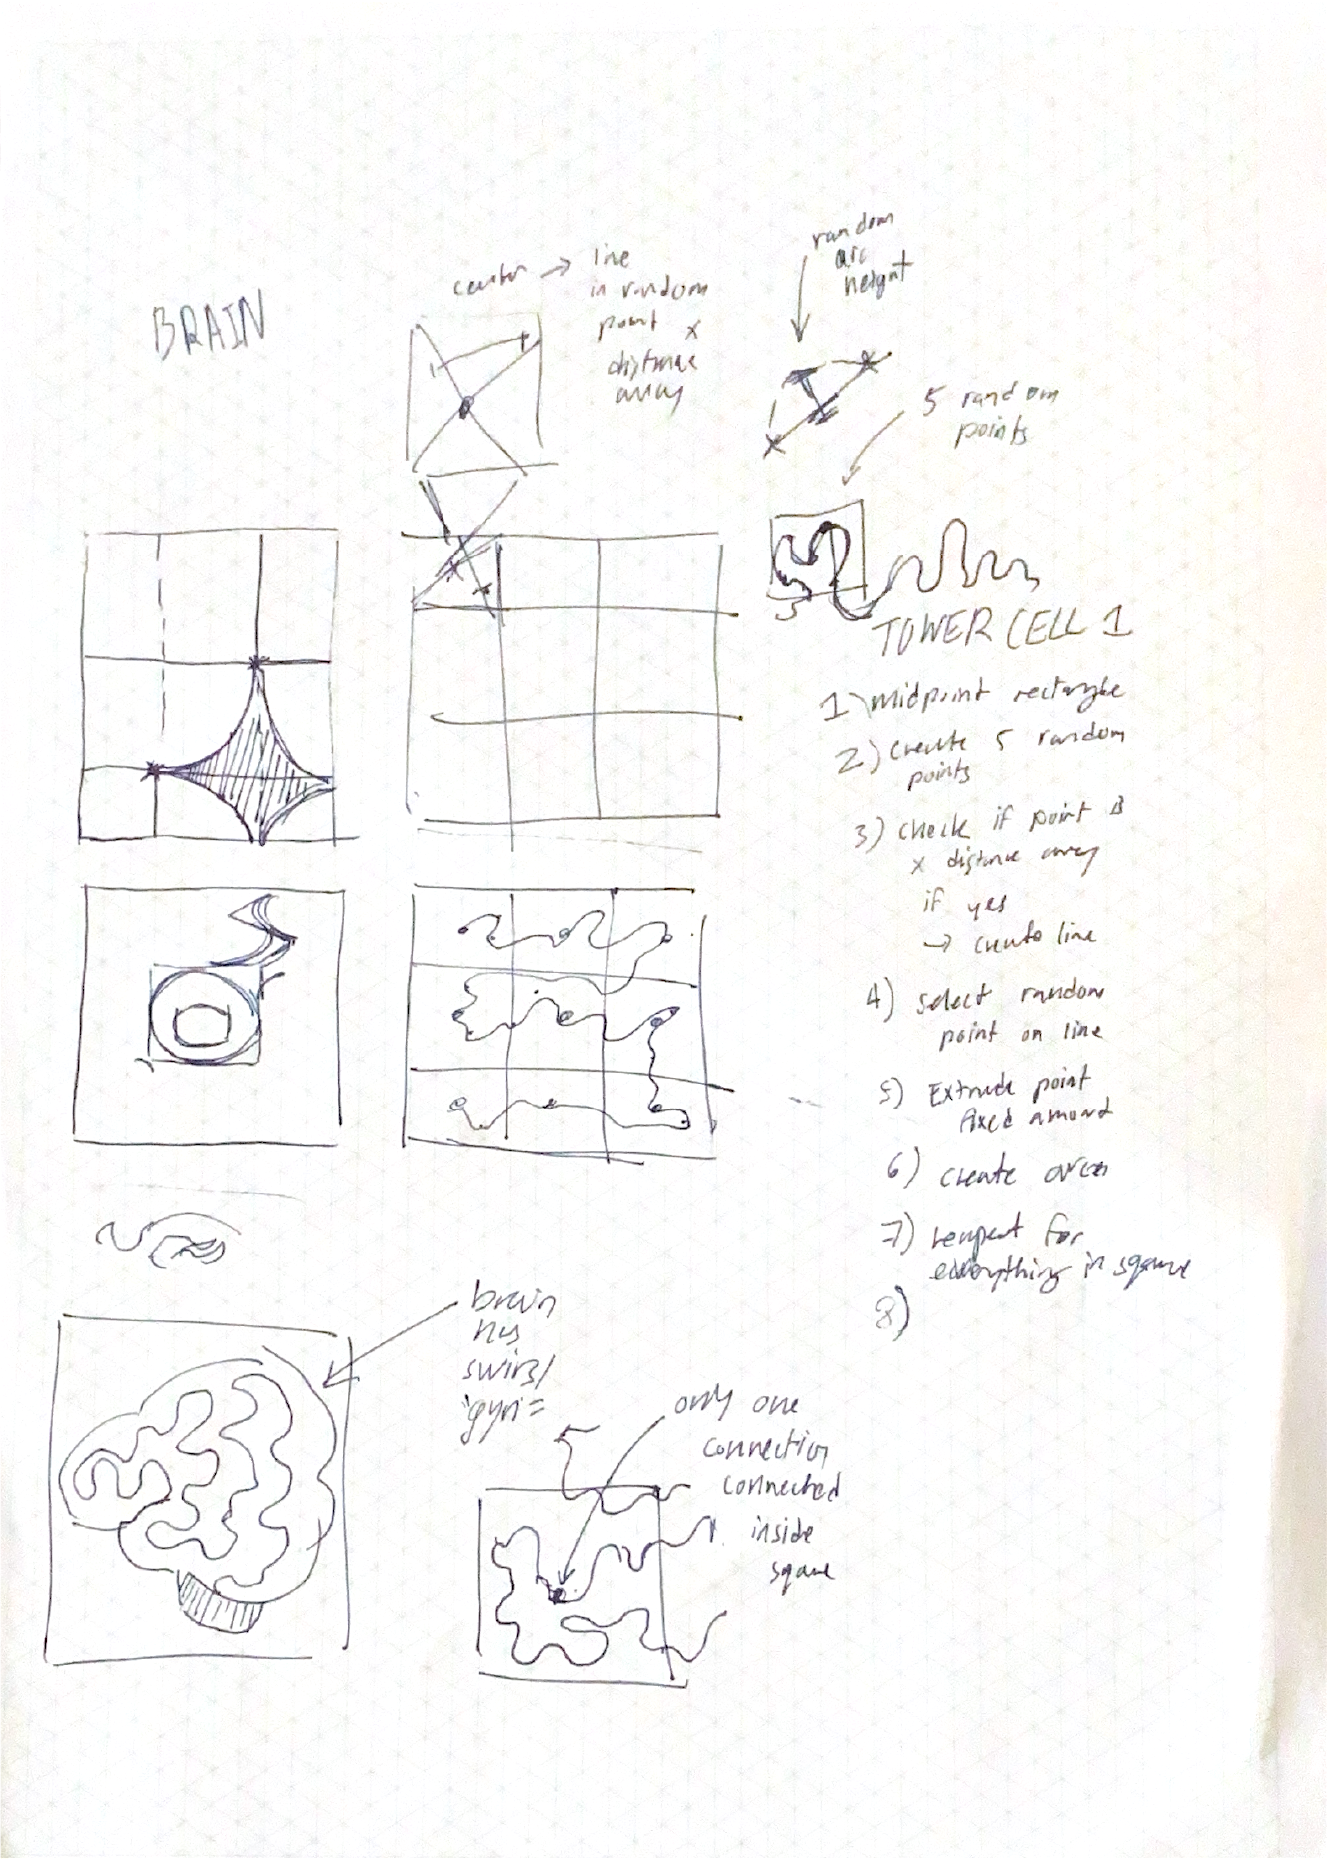 BRAIN
center → line
in random
point x
distance
array
random
arc
height
5 random
points
TOWER CELL 1
1) Midpoint rectangle
2) Create 5 random
points
3) Check if point is
x distance away
if yes
→ create line
4) Select random
point on line
5) Extrude point
fixed amount
6) Create arcs
7) repeat for
everything in square
8)
brain
has
swirls/
only one
connection
connected
inside
square